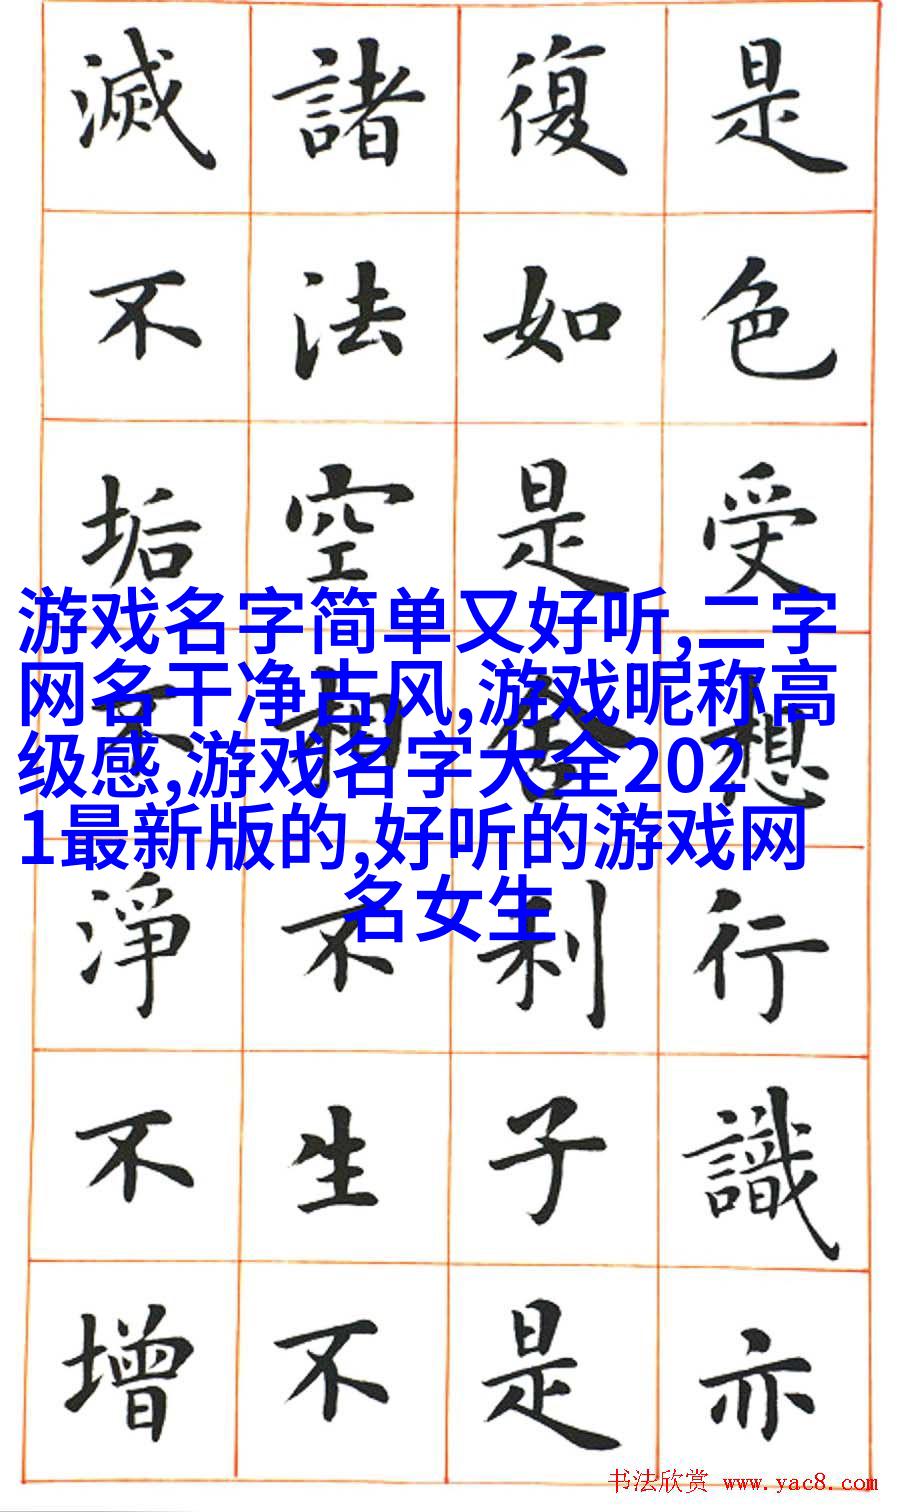 是色受想行識亦
復如是舍利子是
諸法空相不生不
滅不垢不淨不增
游戏名字简单又好听,二字
网名干净古风,游戏昵称高
级感,游戏名字大全202
1最新版的,好听的游戏网
名女生
书法欣赏 www.yac8.com